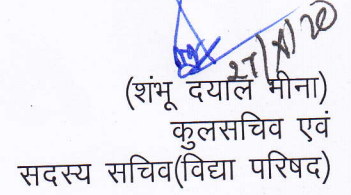 27/X/20
(शंभू दयाल मीना)
कुलसचिव एवं
सदस्य सचिव(विद्या परिषद)